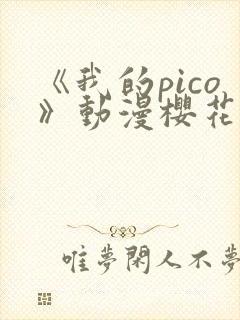 《我的pico
》動漫櫻花
唯夢閑人不夢